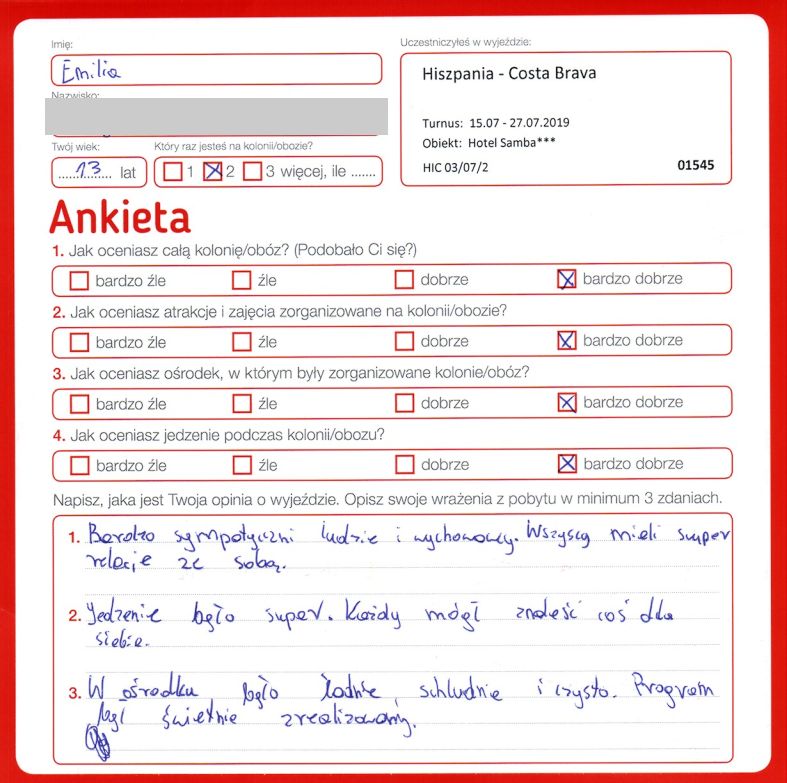 Imię:
Emilia
Nazwisko:
Twój wiek:
13 lat
Który raz jesteś na kolonii/obozie?
1 2 3 więcej, ile .......
Uczestniczyłeś w wyjeździe:
Hiszpania - Costa Brava
Turnus: 15.07 - 27.07.2019
Obiekt: Hotel Samba***
HIC 03/07/2 01545
Ankieta
1. Jak oceniasz całą kolonię/obóz? (Podobało Ci się?)
bardzo źle źle dobrze bardzo dobrze
2. Jak oceniasz atrakcje i zajęcia zorganizowane na kolonii/obozie?
bardzo źle źle dobrze bardzo dobrze
3. Jak oceniasz ośrodek, w którym były zorganizowane kolonie/obóz?
bardzo źle źle dobrze bardzo dobrze
4. Jak oceniasz jedzenie podczas kolonii/obozu?
bardzo źle źle dobrze bardzo dobrze
Napisz, jaka jest Twoja opinia o wyjeździe. Opisz swoje wrażenia z pobytu w minimum 3 zdaniach.
1. Bardzo sympatyczni ludzie i wychowawcy. Wszyscy mieli super
relacje ze sobą.
2. Jedzenie było super. Każdy mógł znaleść coś dla
siebie.
3. W ośrodku było ładnie, schludnie i czysto. Program
był świetnie zrealizowany.